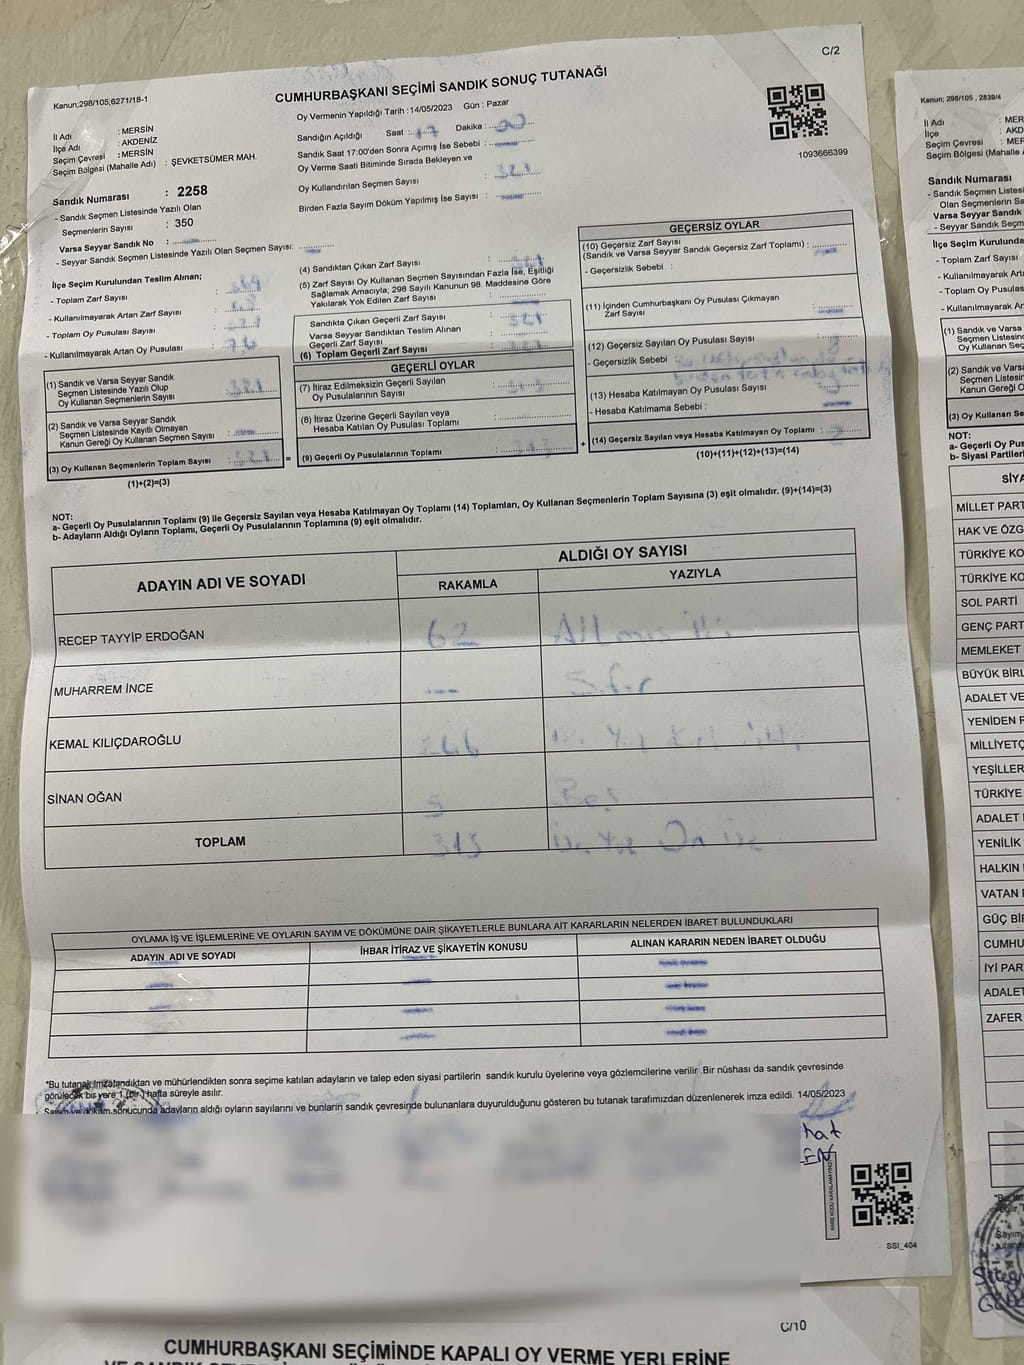 C/2
Kanun;298/105;6271/18-1
CUMHURBAŞKANI SEÇİMİ SANDIK SONUÇ TUTANAĞI
Oy Vermenin Yapıldığı Tarih : 14/05/2023 Gün : Pazar
İl Adı : MERSİN
İlçe Adı : AKDENİZ
Seçim Çevresi : MERSİN
Seçim Bölgesi (Mahalle Adı) : ŞEVKETSÜMER MAH.
Sandığın Açıldığı Saat : 17 Dakika : 00
Sandık Saat 17:00'den Sonra Açımış İse Sebebi :
Oy Verme Saati Bitiminde Sırada Bekleyen ve
Oy Kullandırılan Seçmen Sayısı : 321
Birden Fazla Sayım Döküm Yapılmış İse Sayısı :
1093666399
Sandık Numarası : 2258
- Sandık Seçmen Listesinde Yazılı Olan
Seçmenlerin Sayısı : 350
Varsa Seyyar Sandık No :
- Seyyar Sandık Seçmen Listesinde Yazılı Olan Seçmen Sayısı:
İlçe Seçim Kurulundan Teslim Alınan;
- Toplam Zarf Sayısı :
- Kullanılmayarak Artan Zarf Sayısı :
- Toplam Oy Pusulası Sayısı :
- Kullanılmayarak Artan Oy Pusulası :
(1) Sandık ve Varsa Seyyar Sandık
Seçmen Listesinde Yazılı Olup
Oy Kullanan Seçmenlerin Sayısı : 321
(2) Sandık ve Varsa Seyyar Sandık
Seçmen Listesinde Kayıtlı Olmayan
Kanun Gereği Oy Kullanan Seçmen Sayısı :
(3) Oy Kullanan Seçmenlerin Toplam Sayısı : 321 =
(1)+(2)=(3)
(4) Sandıktan Çıkan Zarf Sayısı : 321
(5) Zarf Sayısı Oy Kullanan Seçmen Sayısından Fazla İse, Eşitliği
Sağlamak Amacıyla; 298 Sayılı Kanunun 98. Maddesine Göre
Yakılarak Yok Edilen Zarf Sayısı :
Sandıkta Çıkan Geçerli Zarf Sayısı : 321
Varsa Seyyar Sandıktan Teslim Alınan
Geçerli Zarf Sayısı :
(6) Toplam Geçerli Zarf Sayısı : 321
GEÇERLİ OYLAR
(7) İtiraz Edilmeksizin Geçerli Sayılan
Oy Pusulalarının Sayısı : 313
(8) İtiraz Üzerine Geçerli Sayılan veya
Hesaba Katılan Oy Pusulası Toplamı :
(9) Geçerli Oy Pusulalarının Toplamı : 313 +
GEÇERSİZ OYLAR
(10) Geçersiz Zarf Sayısı
(Sandık ve Varsa Seyyar Sandık Geçersiz Zarf Toplamı) :
- Geçersizlik Sebebi :
(11) İçinden Cumhurbaşkanı Oy Pusulası Çıkmayan
Zarf Sayısı :
(12) Geçersiz Sayılan Oy Pusulası Sayısı : 8
- Geçersizlik Sebebi :
(13) Hesaba Katılmayan Oy Pusulası Sayısı :
- Hesaba Katılmama Sebebi :
(14) Geçersiz Sayılan veya Hesaba Katılmayan Oy Toplamı : 8
(10)+(11)+(12)+(13)=(14)
NOT:
a- Geçerli Oy Pusulalarının Toplamı (9) ile Geçersiz Sayılan veya Hesaba Katılmayan Oy Toplamı (14) Toplamları, Oy Kullanan Seçmenlerin Toplam Sayısına (3) eşit olmalıdır. (9)+(14)=(3)
b- Adayların Aldığı Oyların Toplamı, Geçerli Oy Pusulalarının Toplamına (9) eşit olmalıdır.
ADAYIN ADI VE SOYADI
ALDIĞI OY SAYISI
RAKAMLA YAZIYLA
RECEP TAYYİP ERDOĞAN 62 Altmış İki
MUHARREM İNCE --- Sıfır
KEMAL KILIÇDAROĞLU 246 İki Yüz Kırk Altı
SİNAN OĞAN 5 Beş
TOPLAM 313 Üç Yüz On Üç
OYLAMA İŞ VE İŞLEMLERİNE VE OYLARIN SAYIM VE DÖKÜMÜNE DAİR ŞİKAYETLERLE BUNLARA AİT KARARLARIN NELERDEN İBARET BULUNDUKLARI
ADAYIN ADI VE SOYADI İHBAR İTİRAZ VE ŞİKAYETİN KONUSU ALINAN KARARIN NEDEN İBARET OLDUĞU
*Bu tutanak imzalandıktan ve mühürlendikten sonra seçime katılan adayların ve talep eden siyasi partilerin sandık kurulu üyelerine veya gözlemcilerine verilir. Bir nüshası da sandık çevresinde
görülecek bir yere 1 (bir) hafta süreyle asılır.
Sayım ve döküm sonucunda adayların aldığı oyların sayılarını ve bunların sandık çevresinde bulunanlara duyurulduğunu gösteren bu tutanak tarafımızdan düzenlenerek imza edildi. 14/05/2023
KARE KODU KARALAMAYINIZ
SSI_404
C/10
CUMHURBAŞKANI SEÇİMİNDE KAPALI OY VERME YERLERİNE
Kanun; 298/105 , 2839/4
İl Adı : MER
İlçe : AKD
Seçim Çevresi : MER
Seçim Bölgesi (Mahalle
Sandık Numarası
- Sandık Seçmen Listesi
Olan Seçmenlerin Sa
Varsa Seyyar Sandık
- Seyyar Sandık Seçm
İlçe Seçim Kurulunda
- Toplam Zarf Sayısı
- Kullanılmayarak Artan
- Toplam Oy Pusulası
- Kullanılmayarak Artan
(1) Sandık ve Varsa
Seçmen Listesinde
Oy Kullanan Seç
(2) Sandık ve Varsa
Seçmen Listesin
Kanun Gereği O
(3) Oy Kullanan Se
NOT:
a- Geçerli Oy Pus
b- Siyasi Partileri
SİYA
MİLLET PART
HAK VE ÖZG
TÜRKİYE KO
TÜRKİYE KO
SOL PARTİ
GENÇ PART
MEMLEKET
BÜYÜK BİRL
ADALET VE
YENİDEN R
MİLLİYETÇ
YEŞİLLER
TÜRKİYE
ADALET
YENİLİK
HALKIN
VATAN
GÜÇ BİR
CUMHU
İYİ PAR
ADALET
ZAFER